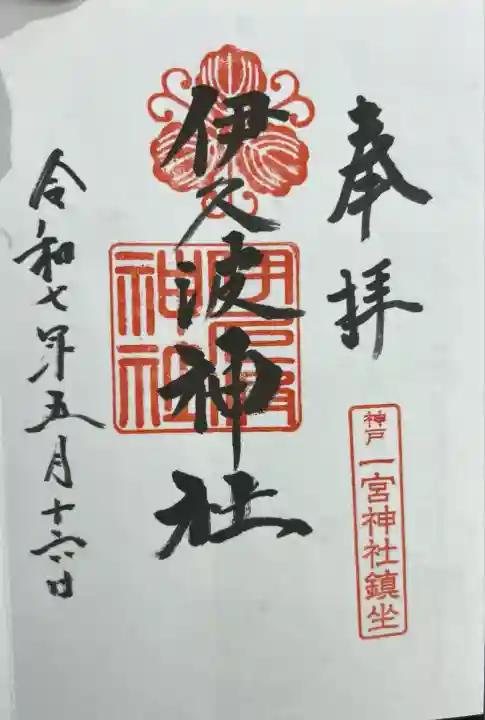 奉拝
神戸 一宮神社鎮坐
伊久波神社
令和七年五月十六日